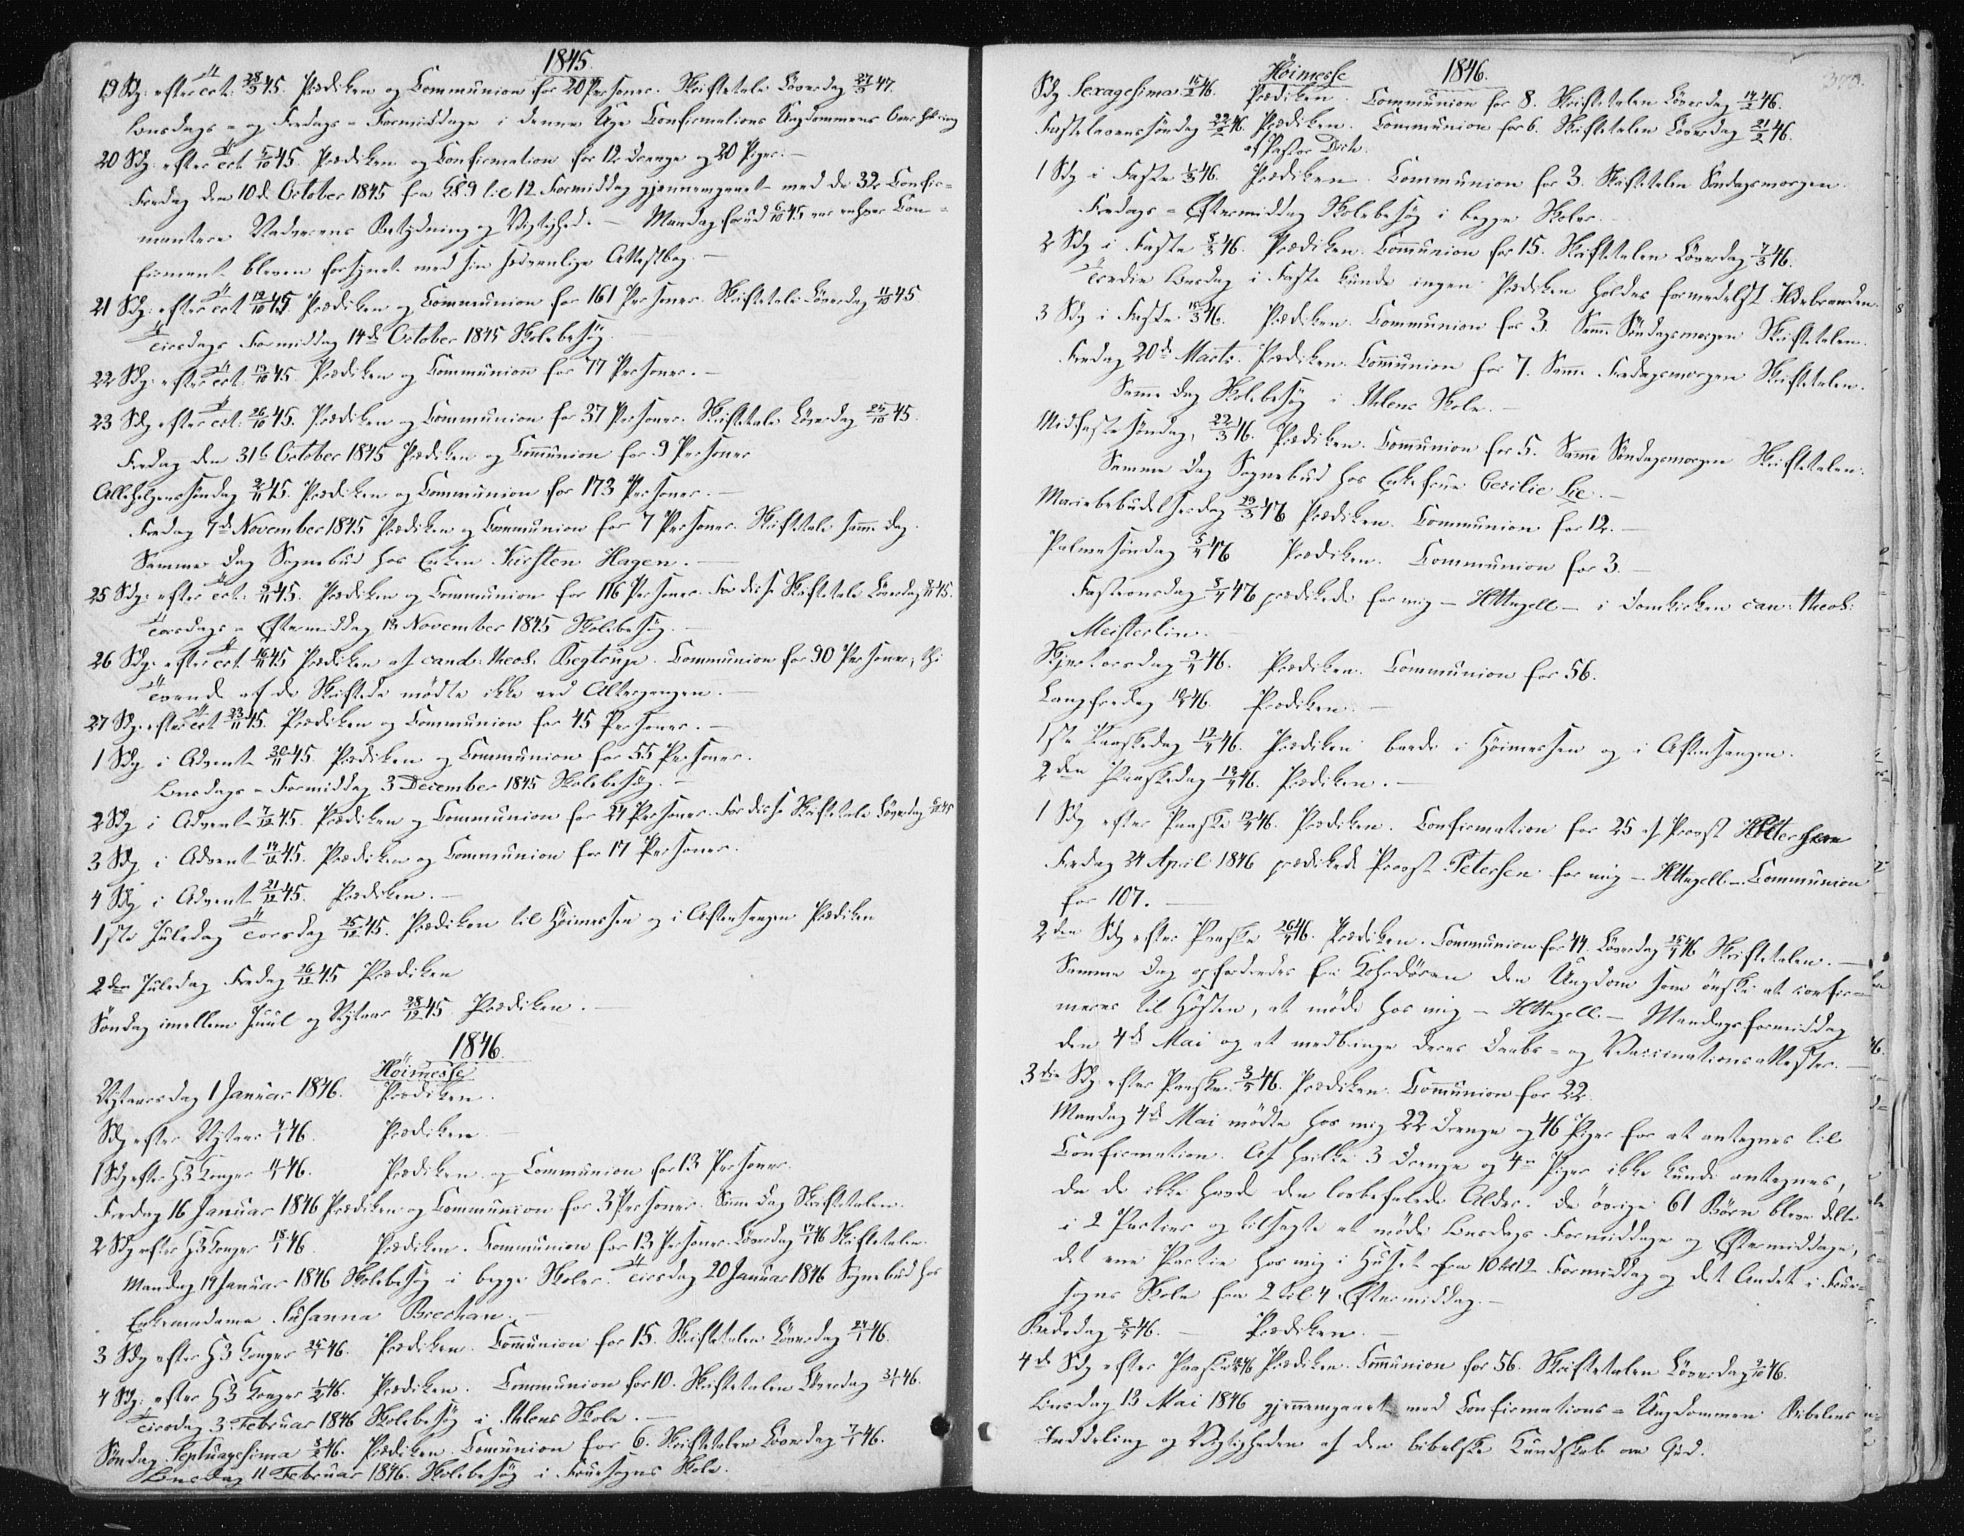 1845.
19 Sdg: efter Trt: 28/9 45. Prædiken og Communion for 20 Personer. Skriftetale Löverdag 27/9 47.
Onsdags- og Fredags-Formiddage i denne Uge Confirmations Ungdommens Overhöring
20 Sdg: efter Trt 5/10 45 Prædiken og Confirmation for 12 Drenge og 20 Piger.-
Fredag den 10d. October 1845 fra Kl 9 til 12 Formiddag gjennemgaaet med de 32 Confir-
mantere Nadverens Betydning og Vigtighed. - Mandag forud 6/10 45 var enhver Con-
firmant bleven forsynet med sin sædvanlige Attestbog.-
21 Sdg: efter Trt 12/10 45 Prædiken og Communion for 161 Personer. Skriftetale Löverdag 11/10 45
Tirsdags Formiddag 14d. October 1845 Skolebesög.
22 Sdg: efter Trt: 19/10 45. Prædiken og Communion for 77 Personer.-
23 Sdg efter Trt: 26/10 45. Prædiken og Communion for 37 Personer. Skriftetale Löverdag 25/10 45.
Fredag den 31te October 1845 Prædiken og Communion for 9 Personer
Allehelgenssöndag 2/11 45. Prædiken og Communion for 173 Personer.-
Fredag 7d. November 1845 Prædiken og Communion for 7 Personer. Skriftetale samme Dag
Samme Dag Sognebud hos Enken Kirsten Hagen.-
25 Sdg: efter Trt: 9/11 45. Prædiken og Communion for 116 Personer. For disse Skriftetale Löverdag 8/11 45.
Torsdags-Eftermiddag 13 November 1845 Skolebesög.-
26 Sdg: efter Trt 16/11 45 Prædiken af cand: theol: Begtrup. Communion for 90 Personer, thi
Tvende af de Skriftede mödte ikke ved Altergangen.-
27 Sdg: efter Trt 23/11 45. Prædiken og Communion for 45 Personer.-
1 Sdg i Advent 30/11 45. Prædiken og Communion for 55 Personer.
Onsdags-Formiddag 3 December 1845 Skolebesög.-
2 Sdg i Advent 7/12 45. Prædiken og Communion for 24 Personer. For disse Skriftetale Löverdag 6/12 45
3 Sdg i Advent 14/12 45. Prædiken og Communion for 17 Personer.
4 Sdg i Advent 21/12 45. Prædiken.-
1ste Juledag Torsdag 25/12 45. Prædiken til Höimessen og i Aftensangen Prædiken
2den Juledag Fredag 26/12 45 Prædiken
Söndag imellem Juul og Nytaar 28/12 45 Prædiken.-
1846.
Höimesse
Nytaarsdag 1 Januar 1846. Prædiken.
Sdg efter Nytaar 4/1 46. Prædiken.-
1 Sdg efter H3 Konger 11/1 46. Prædiken og Communion for 13 Personer.
Fredag 16 Januar 1846 Prædiken og Communion for 3 Personer. Samme Dag Skriftetalen.
2 Sdg efter H3 Konger 18/1 46 Prædiken. Communion for 13 Personer. Löverdag 17/1 46 Skriftetalen.
Mandag 19 Januar 1846 Skolebesög i begge Skoler. Tirsdag 20 Januar 1846 Sognebud hos
Enkemadame Susanna Brechan.-
3 Sdg efter H3 Konger 25/1 46. Prædiken. Communion for 15. Skriftetalen Löverdag 24/1 46.
4 Sdg: efter H3 Konger 1/2 46. Prædiken. Communion for 10. Skriftetalen Löverdag 31/1 46.
Tirsdag 3 Februar 1846 Skolebesög i Ihlens Skole.-
Söndag Septuagesima 8/2 46. Prædiken. Communion for 6. Skriftetalen Löverdag 7/2 46.
Onsdag 11 Februar 1846. Skolebesög i Fruesogns Skole.
1846.
Höimesse
Sdg Sexagesima 15/2 46. Prædiken. Communion for 8. Skriftetalen Löverdag 14/2 46.
Fastelavenssöndag 22/2 46 Prædiken. Communion for 6. Skriftetalen Löverdag 21/2 46.
af Pastor
1 Sdg i Faste 1/3 46. Prædiken. Communion for 3. Skriftetalen Söndagsmorgen.
Fredags-Eftermiddag Skolebesög i begge Skoler.-
2 Sdg i Faste 8/3 46. Prædiken. Communion for 15. Skriftetalen Löverdag 7/3 46.
Tredie Onsdag i Faste kunde ingen Prædiken holdes formedelst Ildebranden.
3 Sdg i Faste 15/3 46. Prædiken. Communion for 3. Samme Söndagsmorgen Skriftetalen.
Fredag 20d. Marts. Prædiken. Communion for 7. Samme Fredagsmorgen Skriftetalen.
Samme Dag Skolebesög i Ihlens Skole.-
Midfastesöndag, 22/3 46. Prædiken. Communion for 5. Samme Söndagsmorgen Skriftetalen.
Samme Dag Sognebud hos Enkefrue Cecilie Lie.-
Mariebebudelsesdag 25/3 46 Prædiken. Communion for 12.-
Palmesöndag 5/4 46 Prædiken. Communion for 3.-
Fasteonsdag 8/4 46 prædikede for mig - HNagell - i Domkirken can: theol:
Meisterlin.-
Skjertorsdag 9/4 46. Prædiken. Communion for 56.
Langfredag 10/4 46. Prædiken.-
1ste Paaskedag 12/4 46. Prædiken baade i Höimessen og i Aftensangen.
2den Paaskedag 13/4 46. Prædiken.-
1 Sdg efter Paaske 19/4 46. Prædiken. Confirmation for 25 af Provst HPetersen
Fredag 24 April 1846 prædikede Provst Petersen for mig - HNagell - Communion
for 107.-
2den Sdg efter Paaske 26/4 46. Prædiken. Communion for 44. Löverdag 25/4 46 Skriftetalen.-
Samme Dag opfordredes fra Kohrdören den Ungdom som önske at confir-
meres til Hösten, at möde hos mig - HNagell - Mandagsformiddag
den 4d. Mai og at medbringe deres Daabs- og Vaccinationsattester.-
3die Sdg efter Paaske 3/5 46. Prædiken. Communion for 22.
Mandag 4d. Mai mödte hos mig 22 Drenge og 46 Piger for at antegnes til
Confirmation. Af hvilke 3 Drenge og 4re Piger ikke kunde antegnes,
da de ikke havde den lovbefalede Alder. De övrige 61 Börn bleve delte
i 2 Partier og tilsagte at möde Onsdags Formiddage og Eftermiddage,
det ene Partie hos mig i Huset fra 10 til 12 Formiddag og det Andet i Frue-
sogns Skole fra 2 til 4 Eftermiddag.-
Bededag 8/5 46. - Prædiken.-
4de Sdg efter Paaske 10/5 46 Prædiken. Communion for 56. Skriftetalen Löverdag 9/5 46.
Onsdag 13 Mai 1846 gjennemgaaet med Confirmations-Ungdommen Bibelens
Inddeling og Vigtigheden af den bibelske Kundskab om Gud.